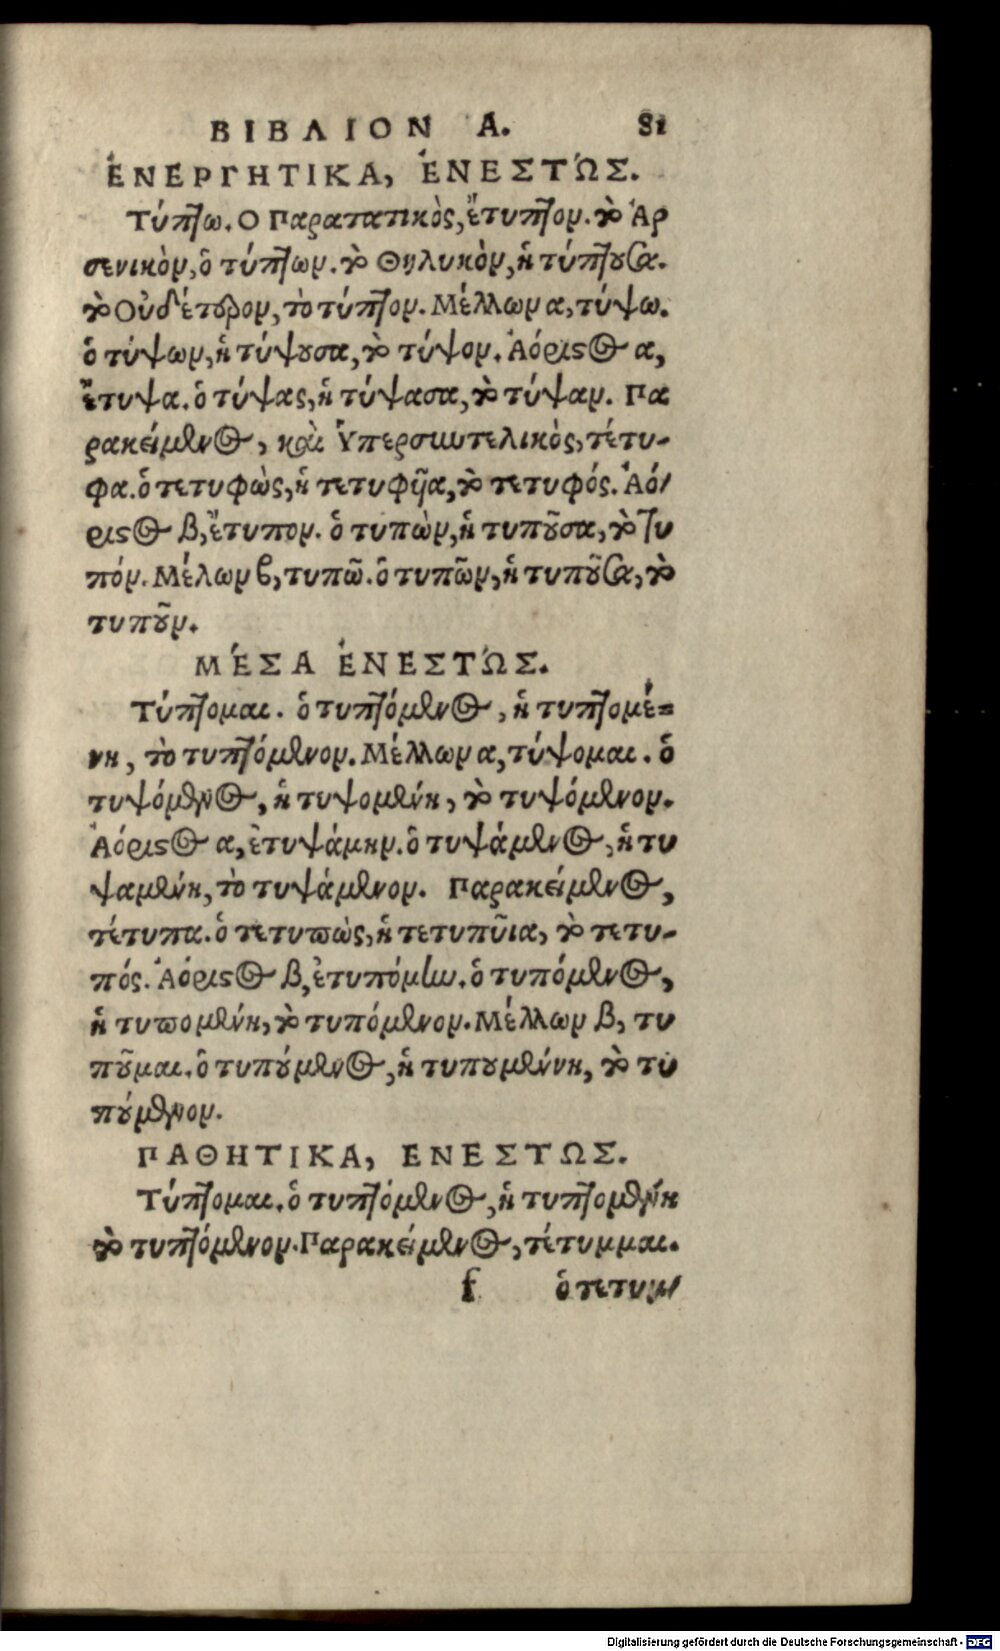 ΒΙΒΛΙΟΝ Α. 81
ἘΝΕΡΓΗΤΙΚΑ, ἘΝΕΣΤΏΣ.
Τύπτω. Ο Παρατατικὸς, ἔτυπτον. τὸ Ἀρ
σενικὸν, ὁ τύπτων. τὸ Θηλυκὸν, ἡ τύπτουσα.
τὸ Οὐδέτερον, τὸ τύπτον. Μέλλων α, τύψω.
ὁ τύψων, ἡ τύψουσα, τὸ τύψον. Ἀόριστος α,
ἔτυψα. ὁ τύψας, ἡ τύψασα, τὸ τύψαν. Πα
ρακείμενος, καὶ Ὑπερσυντελικὸς, τέτυ-
φα. ὁ τετυφὼς, ἡ τετυφῆα, τὸ τετυφός. Ἀό-
ριστος β, ἔτυπον. ὁ τυπὼν, ἡ τυποῦσα, τὸ τυ
πόν. Μέλων β, τυπῶ. ὁ τυπῶν, ἡ τυποῦσα, τὸ
τυποῦν.
ΜΈΣΑ ἘΝΕΣΤΏΣ.
Τύπτομαι. ὁ τυπτόμενος, ἡ τυπτομέ-
νη, τὸ τυπτόμενον. Μέλλων α, τύψομαι. ὁ
τυψόμενος, ἡ τυψομένη, τὸ τυψόμενον.
Ἀόριστος α, ἐτυψάμην. ὁ τυψάμενος, ἡ τυ
ψαμένη, τὸ τυψάμενον. Παρακείμενος,
τέτυπα. ὁ τετυπὼς, ἡ τετυπῦια, τὸ τετυ-
πός. Ἀόριστος β, ἐτυπόμην. ὁ τυπόμενος,
ἡ τυπομένη, τὸ τυπόμενον. Μέλλων β, τυ
ποῦμαι. ὁ τυπούμενος, ἡ τυπουμένη, τὸ τυ
πούμενον.
ΠΑΘΗΤΙΚΑ, ΕΝΕΣΤΩΣ.
Τύπτομαι. ὁ τυπτόμενος, ἡ τυπτομένη
τὸ τυπτόμενον. Παρακείμενος, τέτυμμαι.
f ὁ τετυμ-
Digitalisierung gefördert durch die Deutsche Forschungsgemeinschaft - DFG